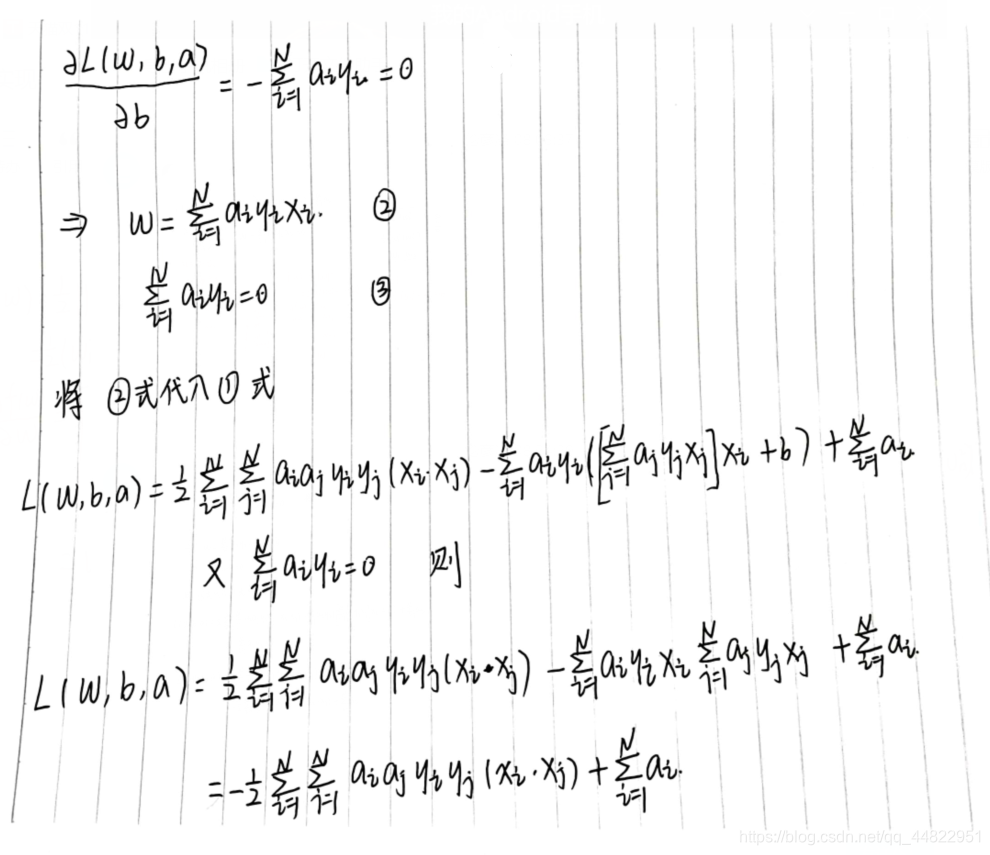 ∂L(w,b,a)/∂b = -∑_{i=1}^{N} a_i y_i = 0
⇒ w = ∑_{i=1}^{N} a_i y_i x_i. ②
∑_{i=1}^{N} a_i y_i = 0 ③
将 ②式代入①式
L(w,b,a) = 1/2 ∑_{i=1}^{N} ∑_{j=1}^{N} a_i a_j y_i y_j (x_i·x_j) - ∑_{i=1}^{N} a_i y_i ([∑_{j=1}^{N} a_j y_j x_j] x_i + b) + ∑_{i=1}^{N} a_i.
又 ∑_{i=1}^{N} a_i y_i = 0 则
L(w,b,a) = 1/2 ∑_{i=1}^{N} ∑_{j=1}^{N} a_i a_j y_i y_j (x_i·x_j) - ∑_{i=1}^{N} a_i y_i x_i ∑_{j=1}^{N} a_j y_j x_j + ∑_{i=1}^{N} a_i.
= -1/2 ∑_{i=1}^{N} ∑_{j=1}^{N} a_i a_j y_i y_j (x_i·x_j) + ∑_{i=1}^{N} a_i.
https://blog.csdn.net/qq_44822951